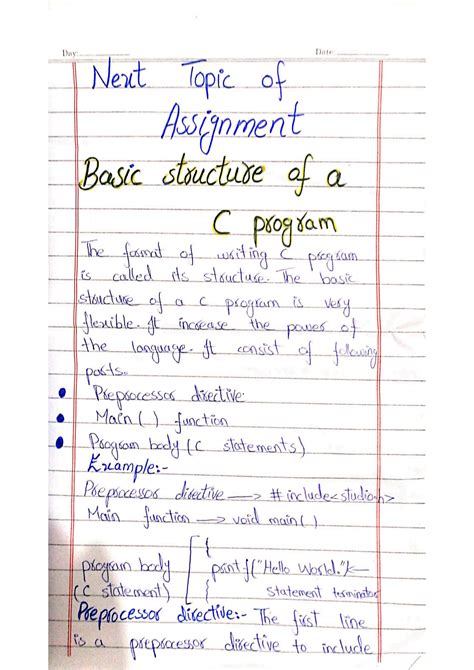 Day:
Date:
Next Topic of
Assignment
Basic structure of a
C program
The format of writing C program
is called its structure. The basic
structure of a C program is very
flexible. It increase the power of
the language. It consist of following
parts.
• Preprocessor directive
• Main( ) function
• Program body (C statements)
Example:-
Preprocessor directive → #include<studio.h>
Main function → void main( )
{
program body printf("Hello World."); ←
(C statement) { statement terminator
Preprocessor directive:- The first line
is a preprocessor directive to include